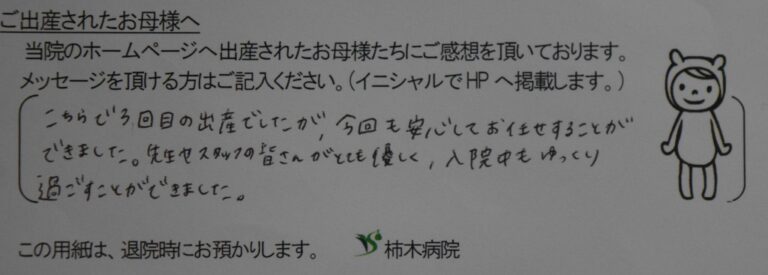 ご出産されたお母様へ
当院のホームページへ出産されたお母様たちにご感想を頂いております。
メッセージを頂ける方はご記入ください。(イニシャルでHPへ掲載します。)
こちらで3回目の出産でしたが、今回も安心してお任せすることが
できました。先生やスタッフの皆さんがとても優しく、入院中もゆっくり
過ごすことができました。
この用紙は、退院時にお預かりします。 柿木病院